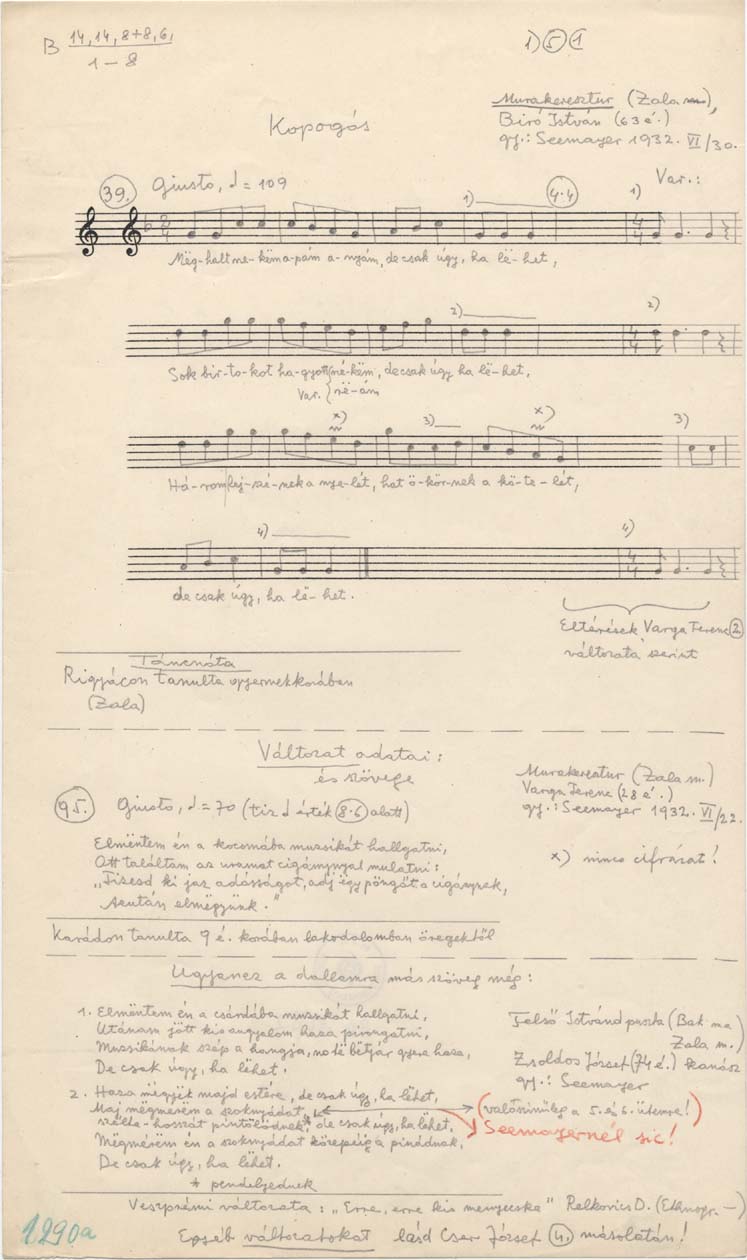 B 14, 14, 8+8, 6,
1 – 8
1) 5 1
Murakeresztur (Zala m.),
Biró István (63 é.)
gy.: Seemayer 1932. VI/30.
Kopogós
39. Giusto, = 109
1) 4·4 Var.: 1)
Mëg-halt ne-këm a-pám a-nyám, de csak úgy, ha lë-het,
2) 2)
Sok bir-to-kot ha-gyott né-këm, de csak úgy ha lë-het,
Var. në-ám
x) 3) x) 3)
Há-rom fej-szé-nek a nye-lét, hat ö-kör-nek a kö-te-lét,
4) 4)
de csak úgy, ha lë-het.
Eltérések Varga Ferenc 2.
változata szerint
Táncnóta
Rigyácon tanulta gyermekkorában
(Zala)
Változat adatai:
és szövege
Murakeresztur (Zala m.)
Varga Ferenc (28 é.)
gy.: Seemayer 1932. VI/22.
95. Giusto, = 70 (tiz érték 8·6 alatt)
x) nincs cifrázat!
Elmëntem én a kocsmába muzsikát hallgatni,
Ott találtam az uramat cigánynyal mulatni:
„Fizesd ki jaz adósságot, adj ëgy pöngőt a cigánynek,
Azután elmëgyünk."
Karádon tanulta 9 é. korában lakodalomban öregektől
Ugyanez a dallamra más szöveg még:
1. Elmëntem én a csárdába muzsikát hallgatni,
Utánam jött kisangyalom haza pirongatni,
Muzsikának szép a hangja, no të bëtjár gyere haza,
De csak úgy, ha lëhet.
Felső Istvánd puszta (Bak ma
Zala m.)
Zsoldos József (74 é.) kanász
gy.: Seemayer
2. Haza mëgyëk majd estére, de csak úgy, ha lëhet,
Maj mëgmérëm a szoknyádat
(valószinüleg a 5. és 6. ütemre!)
Seemayernél sic!
szélte-hosszát pintölödnek,* de csak úgy, ha lëhet,
Mëgmérëm én a szoknyádat közepéig a pinádnak,
De csak úgy, ha lëhet.
* pendelyednek
Veszprémi változata: „Erre, erre kis menyecske" Relkovics D. (Ethnogr. –)
1290a
Egyéb változatokat lásd Cser József 4. másolatán!